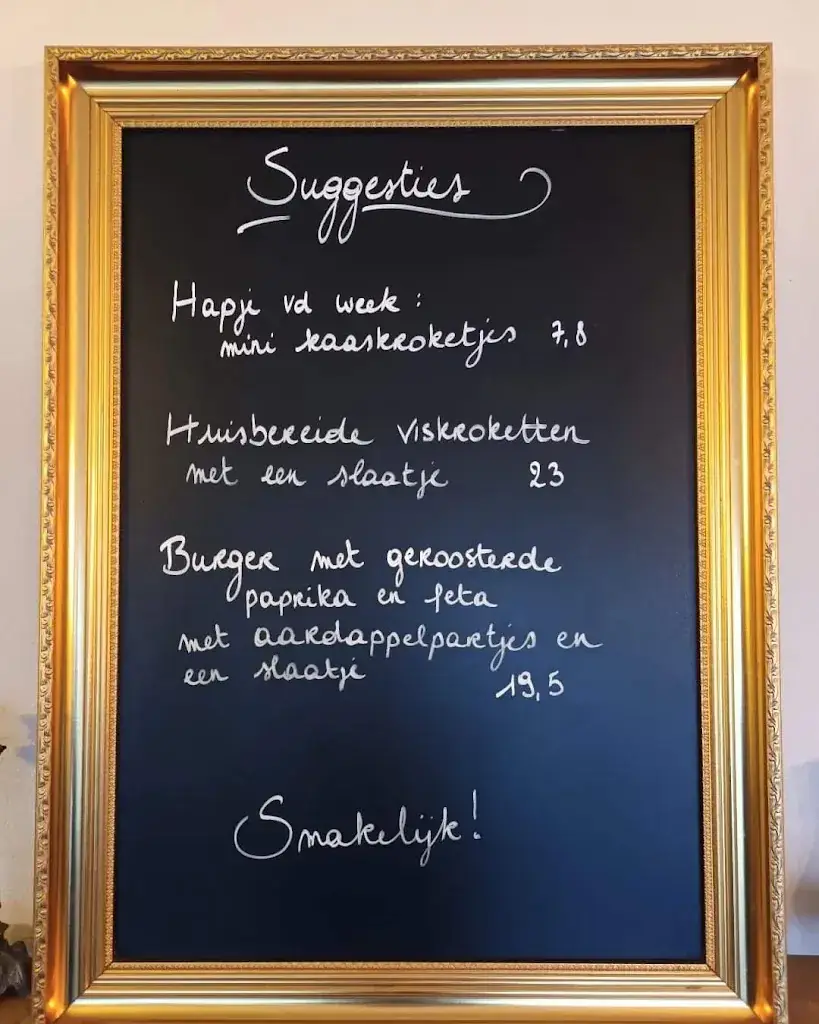 Suggesties
Hapje vd week :
mini kaaskroketjes 7,8
Huisbereide viskroketten
met een slaatje 23
Burger met geroosterde
paprika en feta
met aardappelpartjes en
een slaatje 19,5
Smakelijk!